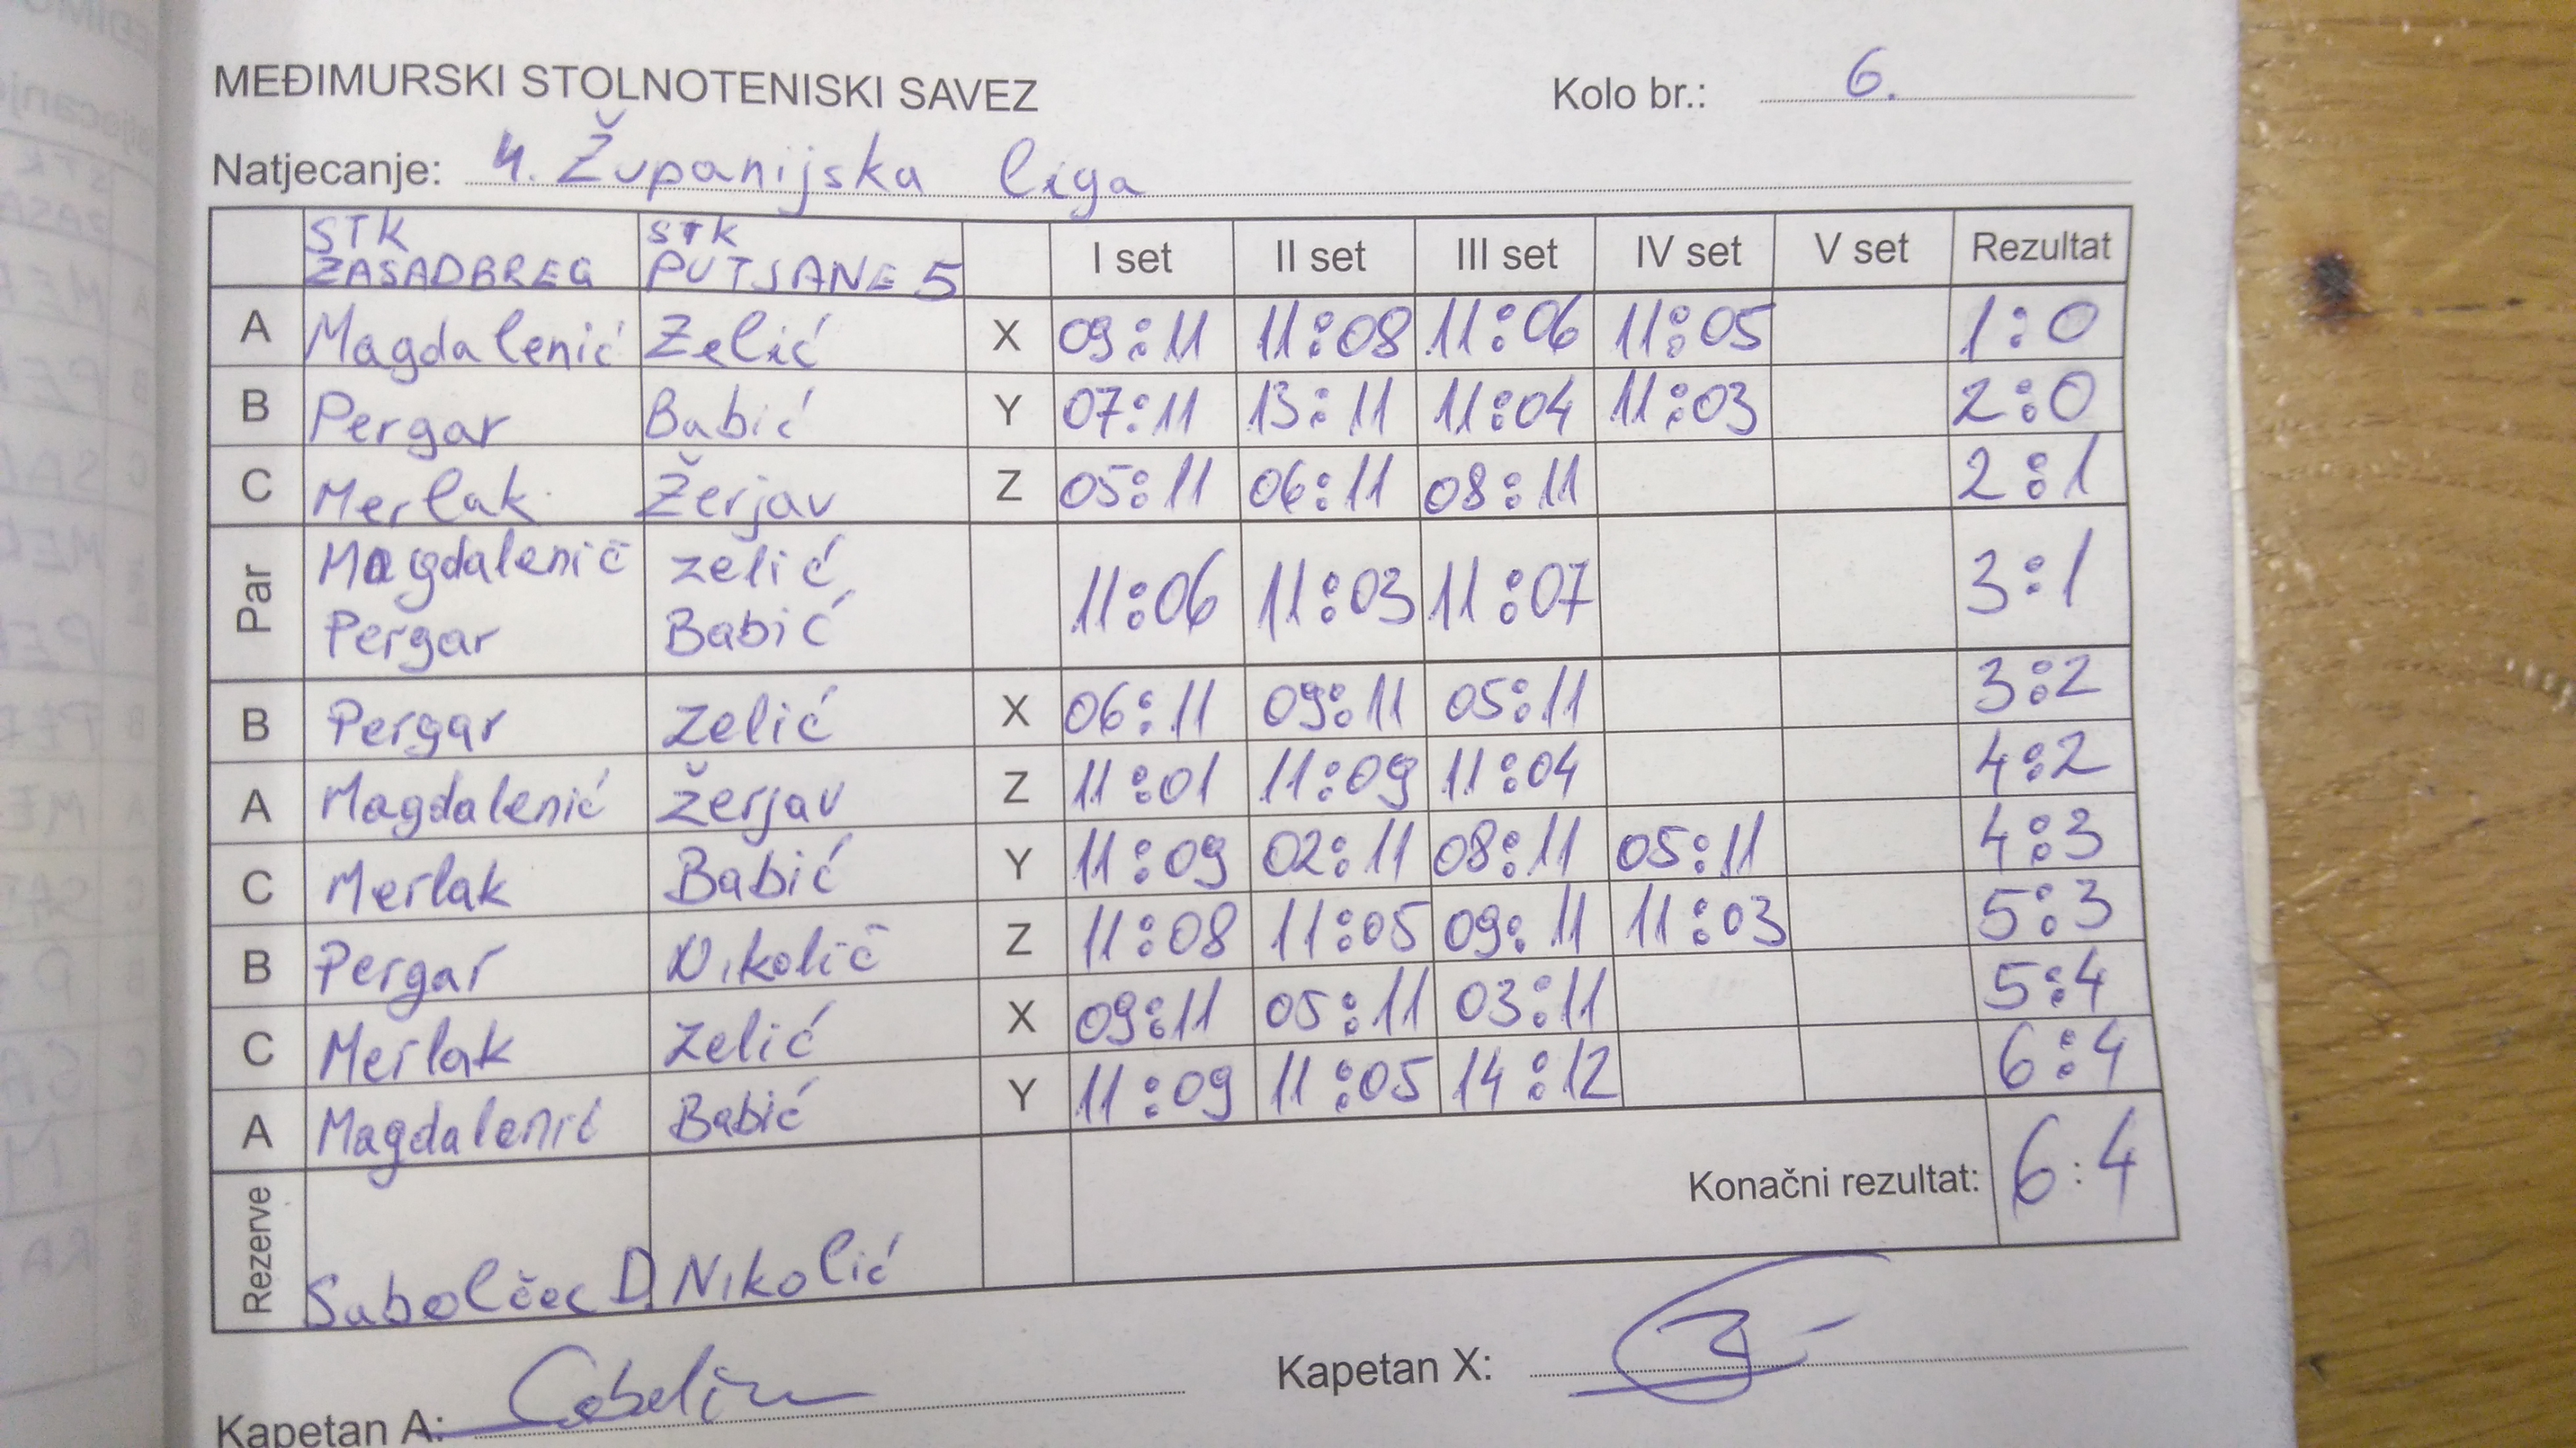 MEĐIMURSKI STOLNOTENISKI SAVEZ Kolo br.: 6.
Natjecanje: 4. Županijska liga
STK ZASADBREG STK PUTJANE 5 I set II set III set IV set V set Rezultat
A Magdalenić Zelić X 09:11 11:08 11:06 11:05 1:0
B Pergar Babić Y 07:11 13:11 11:04 11:03 2:0
C Merlak Žerjav Z 05:11 06:11 08:11 2:1
Par Magdalenić Pergar Zelić Babić 11:06 11:03 11:07 3:1
B Pergar Zelić X 06:11 09:11 05:11 3:2
A Magdalenić Žerjav Z 11:01 11:09 11:04 4:2
C Merlak Babić Y 11:09 02:11 08:11 05:11 4:3
B Pergar Nikolić Z 11:08 11:05 09:11 11:03 5:3
C Merlak Zelić X 09:11 05:11 03:11 5:4
A Magdalenić Babić Y 11:09 11:05 14:12 6:4
Konačni rezultat: 6:4
Rezerve Sabolčec D. Nikolić
Kapetan A: Kapetan X: